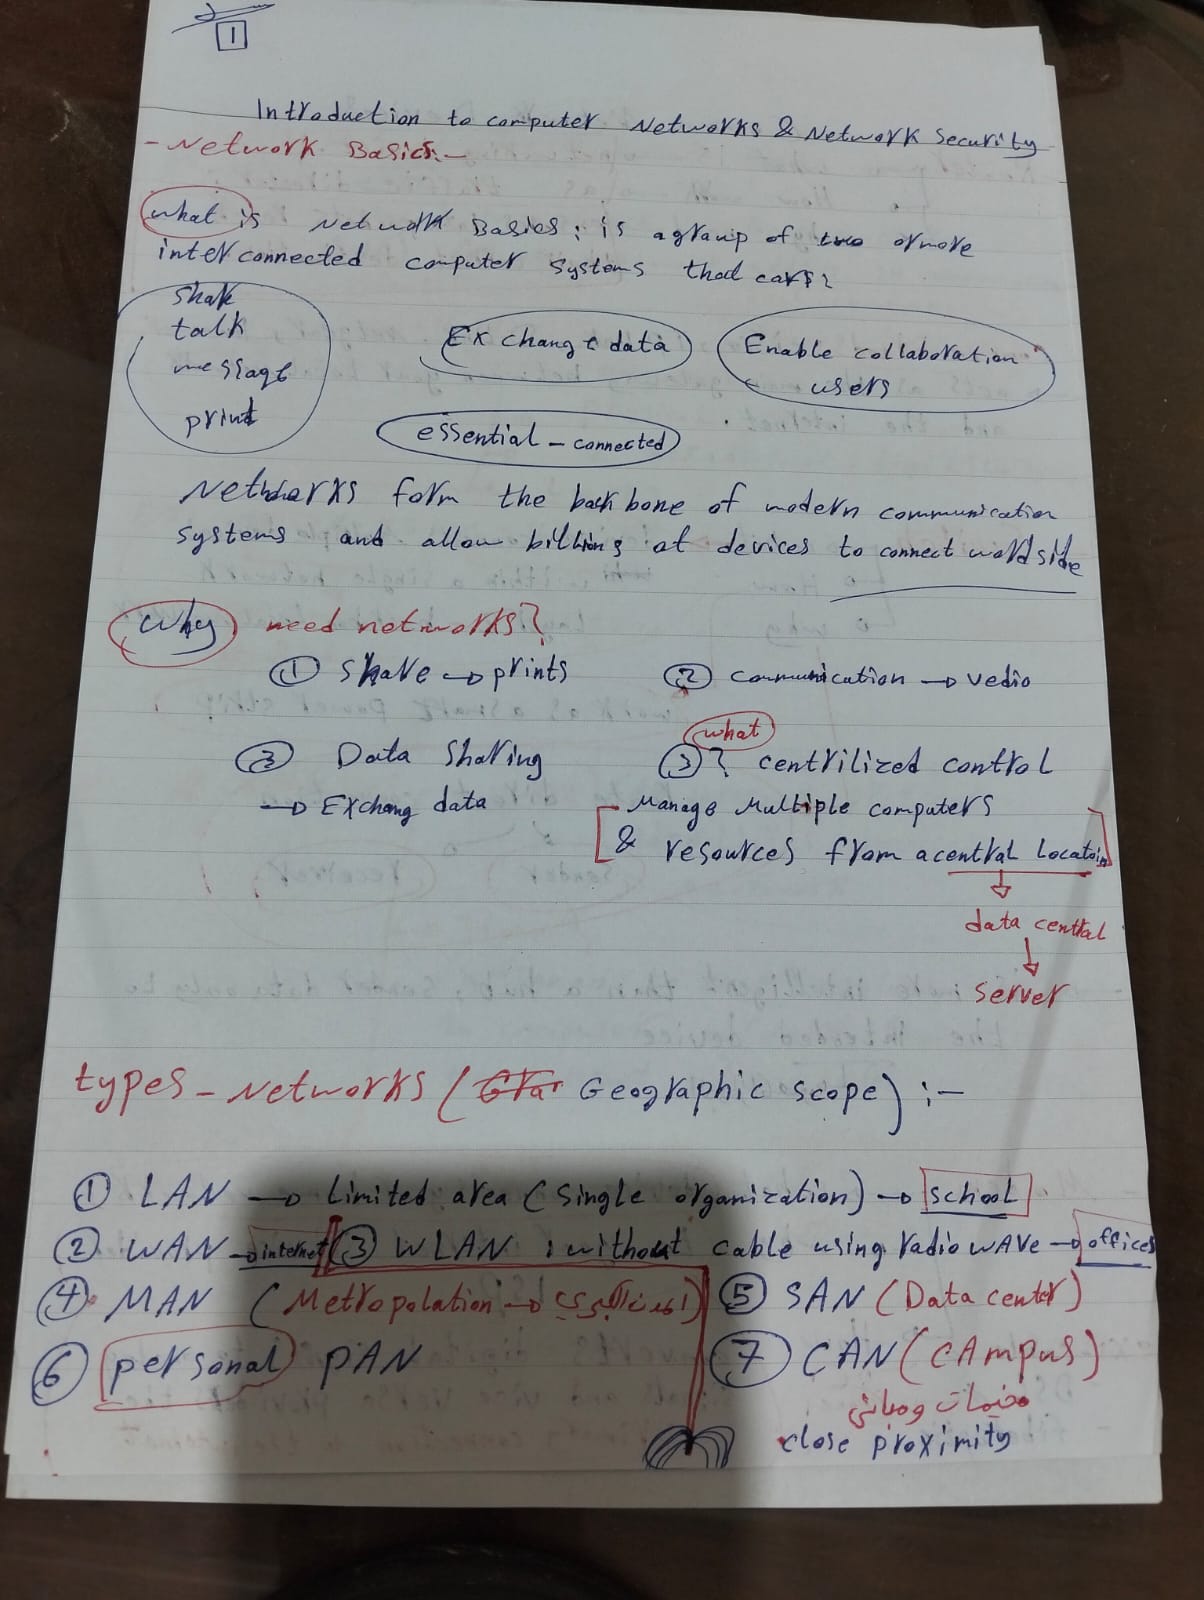 1
Introduction to computer Networks & Network Security
- Network Basics:-
what is Network Basics: is a group of two or more
interconnected computer systems that
share
talk
message
print
Exchange data
Enable collaboration
users
essential - connected
Networks form the backbone of modern communication
systems and allow billions of devices to connect worldside
Why need networks?
① share → prints
② communication → vedio
③ Data Sharing
→ Exchang data
what
③? centrilized control
Manage Multiple computers
& resources from a central Locatoin
data central
server
types - Networks ( Geographic scope) :-
① LAN → Limited area (single organization) → school
② WAN → internet ③ WLAN : without cable using radio wave → offices
④ MAN (Metropolation →
⑤ SAN (Data center)
⑥ personal PAN
⑦ CAN (CAmpus)
مخيمات ومباني
close proximity